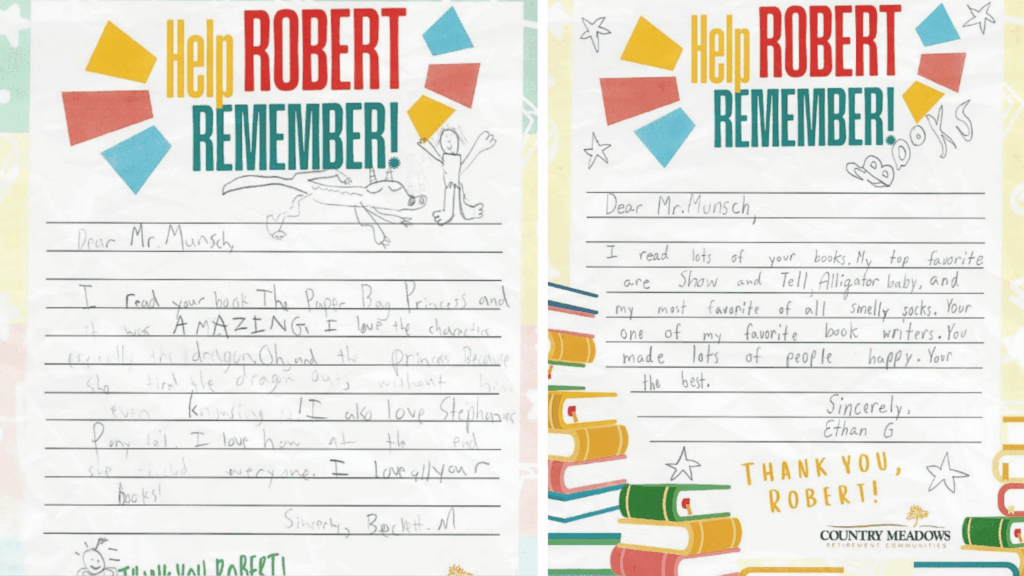 Help ROBERT
REMEMBER!
Dear Mr. Munsch,
I read your book The Paper Bag Princess and
it was AMAZING, I love the characters
especially the dragon, Oh, and the princess Because
she tired the dragon out, without him
even knowing it! I also love Stephanies
Ponytail. I love how at the end
she tricked everyone. I love all your
books!
Sincerly, Beckett. M
THANK YOU ROBERT!
Help ROBERT
REMEMBER!
BOOKS
Dear Mr. Munsch,
I read lots of your books. My top favorite
are Show and Tell, Alligator baby, and
my most favorite of all smelly socks. Your
one of my favorite book writers. You
made lots of people happy. Your
the best.
Sincerely,
Ethan G
THANK YOU,
ROBERT!
COUNTRY MEADOWS
RETIREMENT COMMUNITIES